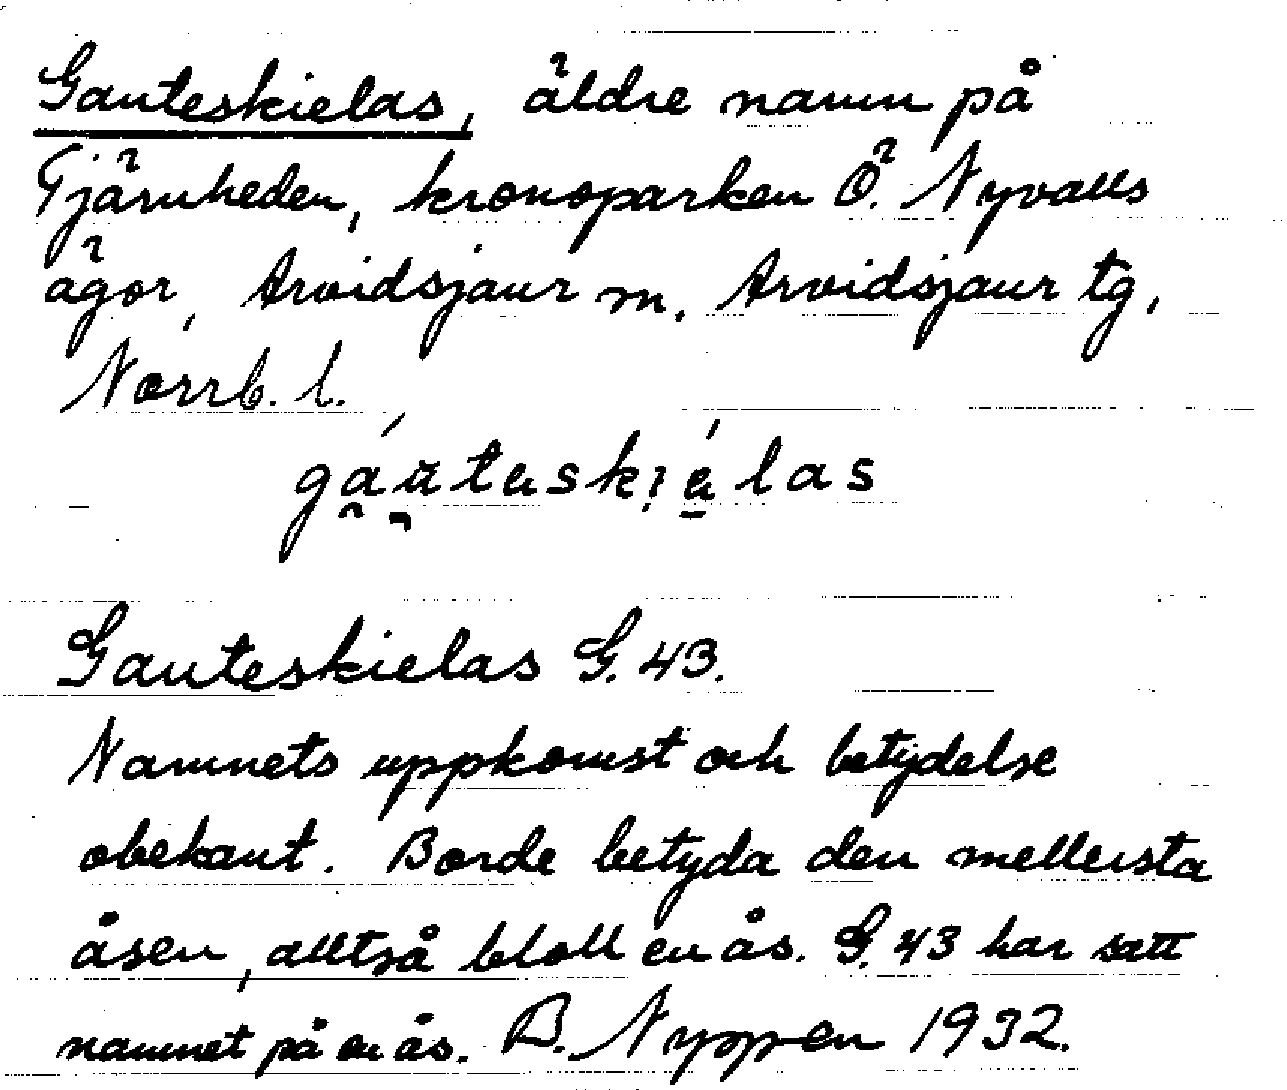 Gauteskielas, äldre namn på
Tjärnheden, kronoparken Ö. Nyvalls
ägor, Arvidsjaur sn, Arvidsjaur tg,
Norrb. l.
Gauteskielas G. 43.
Namnets uppkomst och betydelse
obekant. Borde betyda den mellersta
åsen, alltså blott en ås. G. 43 har sett
namnet på en ås. B. Nyppen 1932.